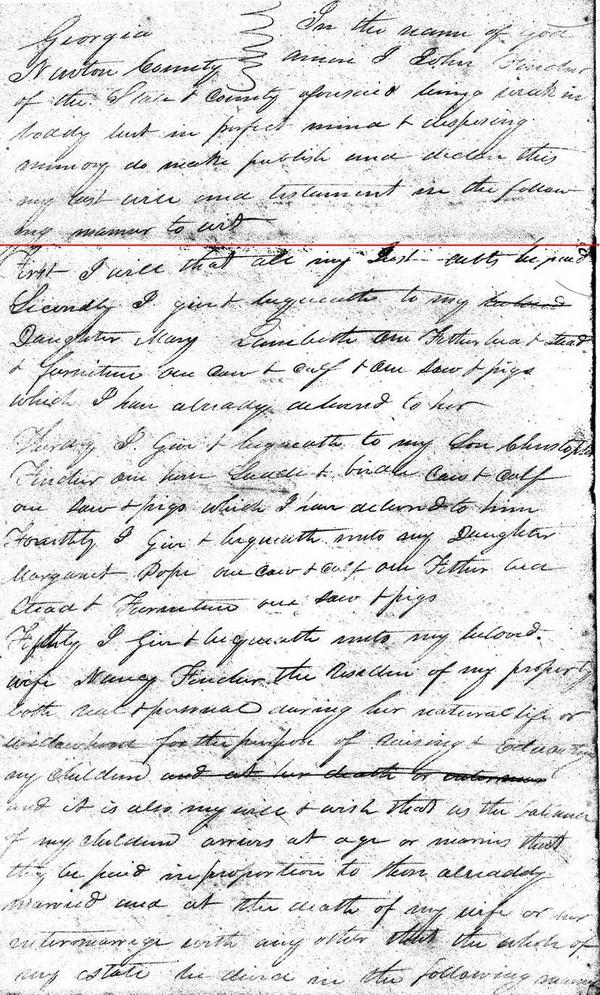 Georgia In the name of god
Newton County amen I John Fincher
of the State & County aforesaid being weak in
boddy but in perfect mind & disposing
memory do make publish and declare this
my last will and testament in the follow
ing manner to wit
First I will that all my Just debts be paid
Secondly I give & bequeath to my beloved
Daughter Mary Lambeth one Fether bead & stead
& furniture one cow & calf & one sow & pigs
which I have already delivered to her
Thirdly I Give & bequeath to my Son Christopher
Fincher one horse Saddle & bridle cow & calf
one sow & pigs which I have delivered to him
Fourthly I Give & bequeath unto my Daughter
Margaret Pope one cow & calf one Fether bead
Stead & Furniture one sow & pigs
Fifthly I Give & bequeath unto my beloved
wife Nancy Fincher the Residue of my property
both real & personal during her natural life or
widowhood for the purpose of raising & Educating
my children and at her death or
and it is also my will & wish that as the balance
of my children arives at age or marries that
they be paid in proportion to them alreaddy
married and at the death of my wife or her
intermarriage with any other that the whole of
my estate be divided in the following manner